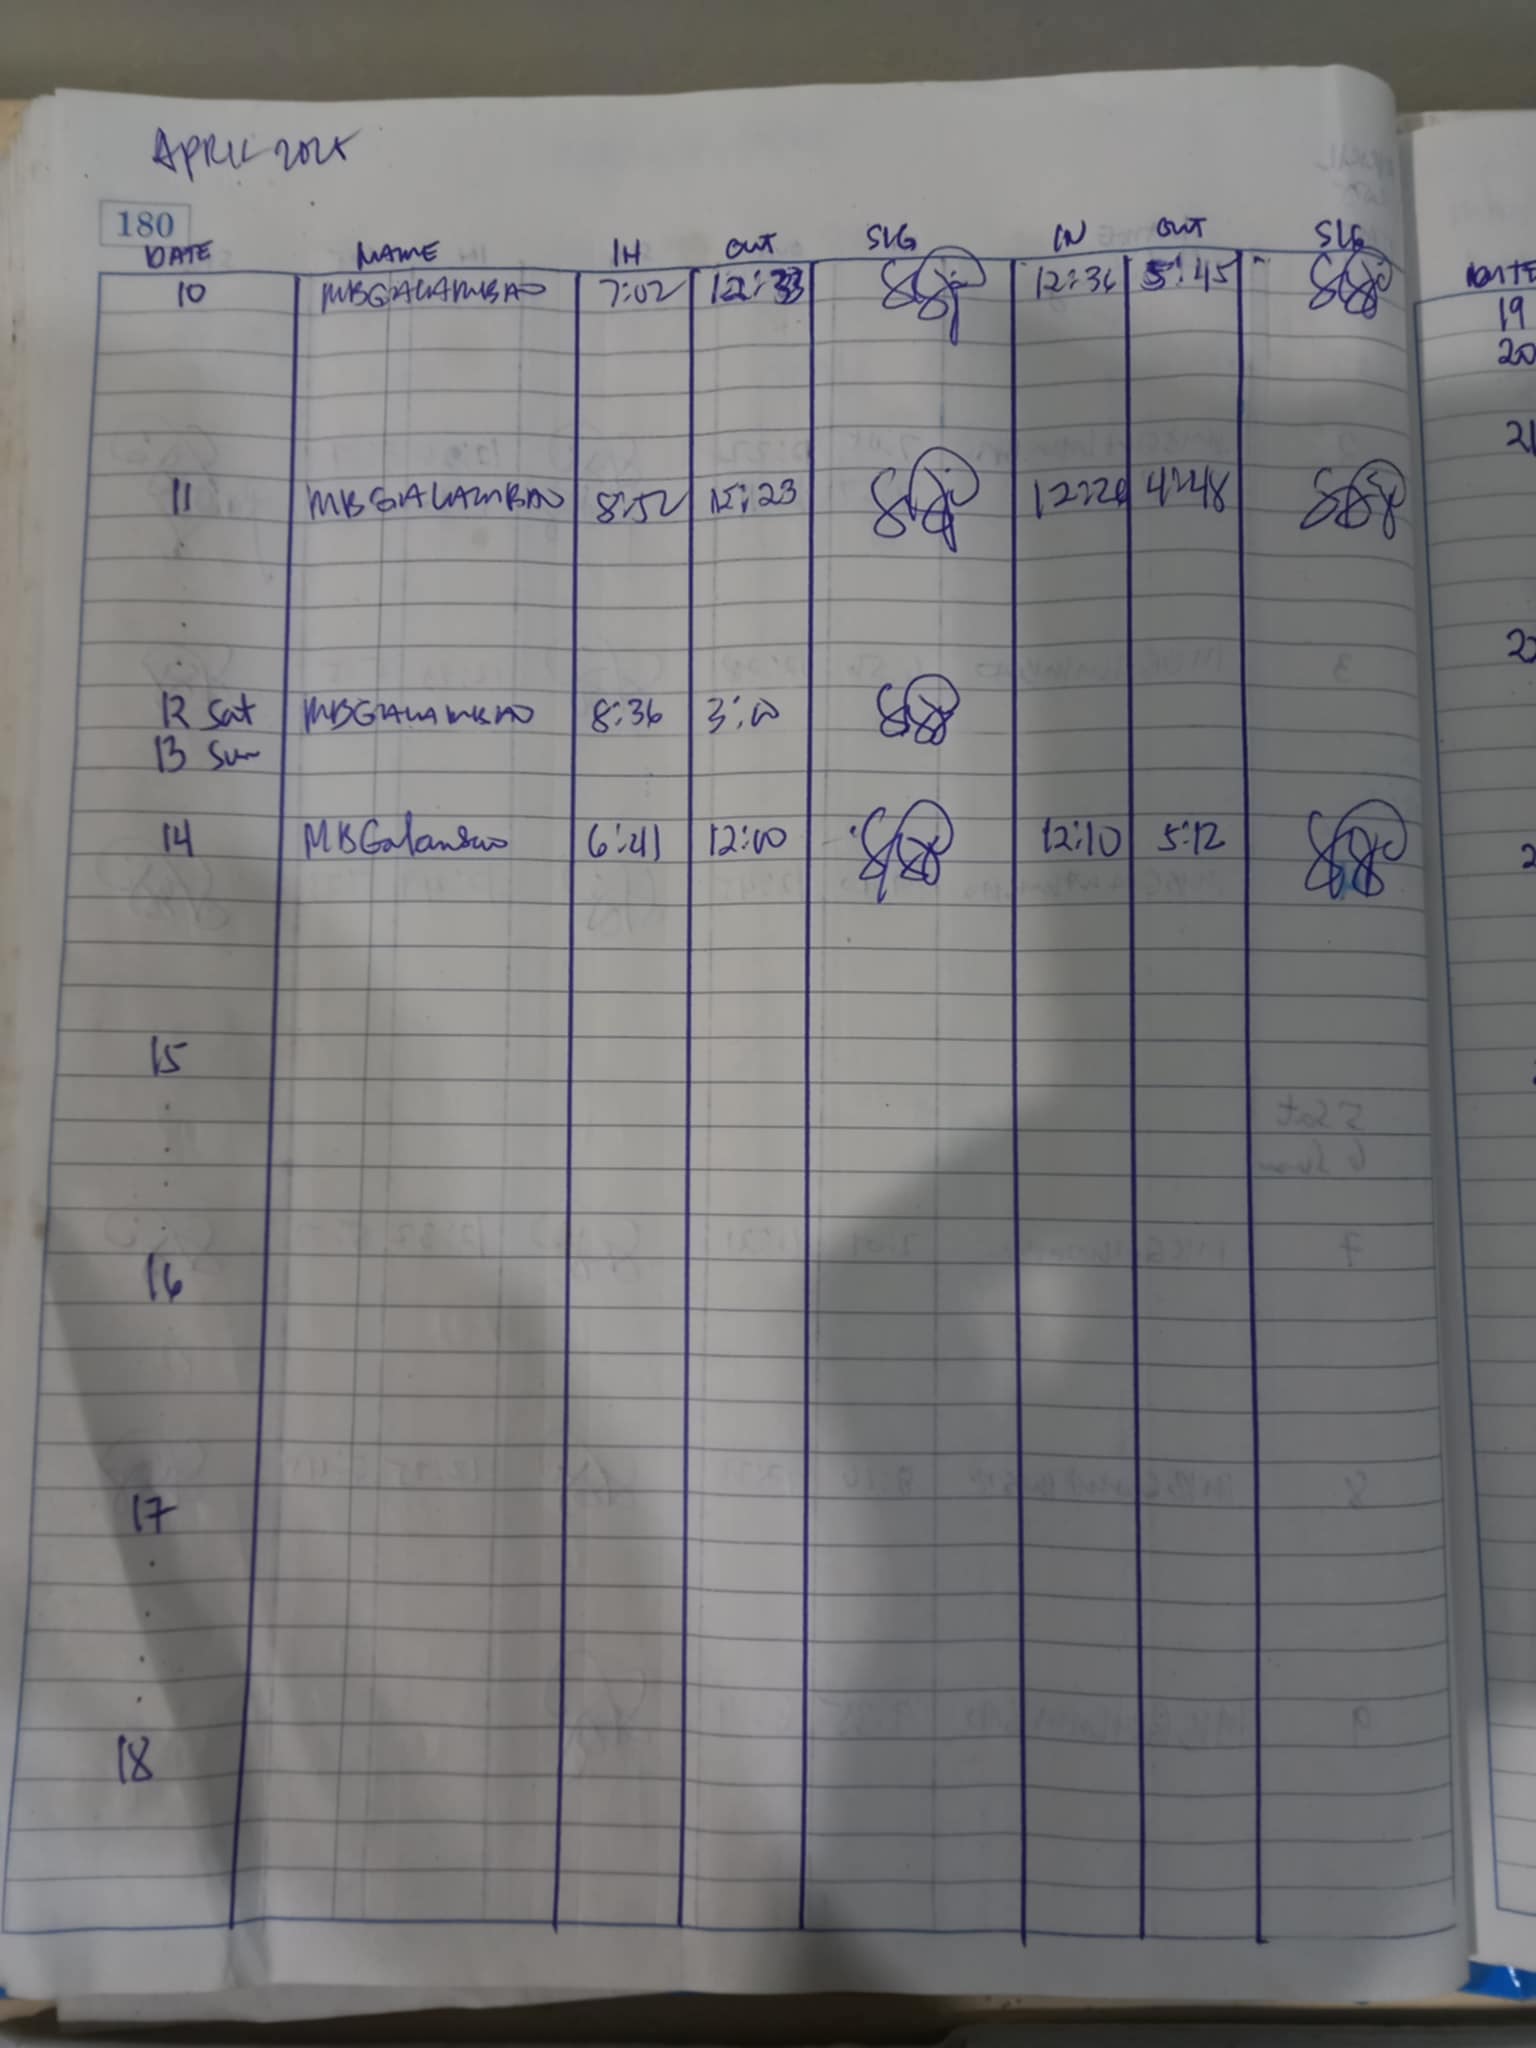 APRIL 2025
180
DATE NAME IN OUT SIG IN OUT SIG
10 MBGALAMBAO 7:02 12:33 12:36 5:45
11 MBGALAMBAO 8:52 12:23 4:48
12 Sat MBGALAMBAO 8:36 3:00
13 Sun
14 MBGalambao 6:41 12:00 12:10 5:12
15
16
17
18
DATE
19
20
21